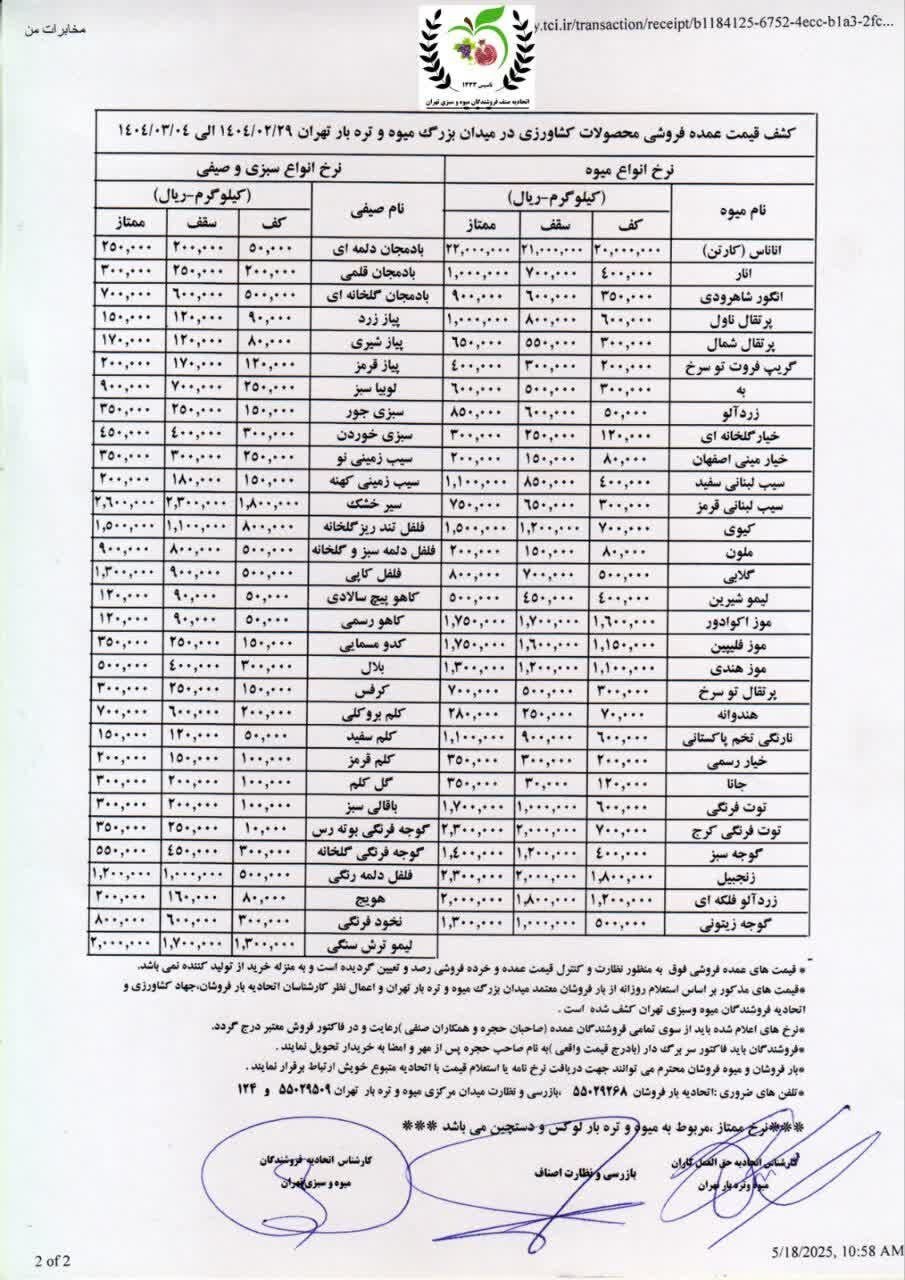 مخابرات من
y.tci.ir/transaction/receipt/b1184125-6752-4ecc-b1a3-2fc...
تاسیس ۱۳۳۳
اتحادیه صنف فروشندگان میوه و سبزی تهران
کشف قیمت عمده فروشی محصولات کشاورزی در میدان بزرگ میوه و تره بار تهران ۱۴۰۴/۰۲/۲۹ الی ۱۴۰۴/۰۳/۰۴
نرخ انواع میوه نرخ انواع سبزی و صیفی
نام میوه (کیلوگرم-ریال) نام صیفی (کیلوگرم-ریال)
کف سقف ممتاز کف سقف ممتاز
اناناس (کارتن) ۲۰,۰۰۰,۰۰۰ ۲۱,۰۰۰,۰۰۰ ۲۲,۰۰۰,۰۰۰ بادمجان دلمه ای ۵۰,۰۰۰ ۲۰۰,۰۰۰ ۲۵۰,۰۰۰
انار ۴۰۰,۰۰۰ ۷۰۰,۰۰۰ ۱,۰۰۰,۰۰۰ بادمجان قلمی ۲۰۰,۰۰۰ ۲۵۰,۰۰۰ ۳۰۰,۰۰۰
انگور شاهرودی ۳۵۰,۰۰۰ ۶۰۰,۰۰۰ ۹۰۰,۰۰۰ بادمجان گلخانه ای ۵۰۰,۰۰۰ ۶۰۰,۰۰۰ ۷۰۰,۰۰۰
پرتقال ناول ۶۰۰,۰۰۰ ۸۰۰,۰۰۰ ۱,۰۰۰,۰۰۰ پیاز زرد ۹۰,۰۰۰ ۱۲۰,۰۰۰ ۱۵۰,۰۰۰
پرتقال شمال ۳۰۰,۰۰۰ ۵۵۰,۰۰۰ ۶۵۰,۰۰۰ پیاز شیری ۸۰,۰۰۰ ۱۲۰,۰۰۰ ۱۷۰,۰۰۰
گریپ فروت تو سرخ ۲۰۰,۰۰۰ ۳۰۰,۰۰۰ ۴۰۰,۰۰۰ پیاز قرمز ۱۲۰,۰۰۰ ۱۷۰,۰۰۰ ۲۰۰,۰۰۰
به ۳۰۰,۰۰۰ ۵۰۰,۰۰۰ ۶۰۰,۰۰۰ لوبیا سبز ۲۵۰,۰۰۰ ۷۰۰,۰۰۰ ۹۰۰,۰۰۰
زردآلو ۵۰,۰۰۰ ۶۰۰,۰۰۰ ۸۵۰,۰۰۰ سبزی جور ۱۵۰,۰۰۰ ۲۵۰,۰۰۰ ۳۵۰,۰۰۰
خیارگلخانه ای ۱۲۰,۰۰۰ ۲۵۰,۰۰۰ ۳۰۰,۰۰۰ سبزی خوردن ۳۰۰,۰۰۰ ۴۰۰,۰۰۰ ۴۵۰,۰۰۰
خیار مینی اصفهان ۸۰,۰۰۰ ۱۵۰,۰۰۰ ۲۰۰,۰۰۰ سیب زمینی نو ۲۵۰,۰۰۰ ۳۰۰,۰۰۰ ۳۵۰,۰۰۰
سیب لبنانی سفید ۴۰۰,۰۰۰ ۸۵۰,۰۰۰ ۱,۱۰۰,۰۰۰ سیب زمینی کهنه ۱۵۰,۰۰۰ ۱۸۰,۰۰۰ ۲۰۰,۰۰۰
سیب لبنانی قرمز ۳۰۰,۰۰۰ ۶۵۰,۰۰۰ ۷۵۰,۰۰۰ سیر خشک ۱,۸۰۰,۰۰۰ ۲,۳۰۰,۰۰۰ ۲,۶۰۰,۰۰۰
کیوی ۷۰۰,۰۰۰ ۱,۲۰۰,۰۰۰ ۱,۵۰۰,۰۰۰ فلفل تند ریز گلخانه ۸۰۰,۰۰۰ ۱,۱۰۰,۰۰۰ ۱,۵۰۰,۰۰۰
ملون ۸۰,۰۰۰ ۱۵۰,۰۰۰ ۲۰۰,۰۰۰ فلفل دلمه سبز و گلخانه ۵۰۰,۰۰۰ ۸۰۰,۰۰۰ ۹۰۰,۰۰۰
گلابی ۵۰۰,۰۰۰ ۷۰۰,۰۰۰ ۸۰۰,۰۰۰ فلفل کاپی ۵۰۰,۰۰۰ ۹۰۰,۰۰۰ ۱,۳۰۰,۰۰۰
لیمو شیرین ۴۰۰,۰۰۰ ۴۵۰,۰۰۰ ۵۰۰,۰۰۰ کاهو پیچ سالادی ۵۰,۰۰۰ ۹۰,۰۰۰ ۱۲۰,۰۰۰
موز اکوادور ۱,۶۰۰,۰۰۰ ۱,۷۰۰,۰۰۰ ۱,۷۵۰,۰۰۰ کاهو رسمی ۵۰,۰۰۰ ۹۰,۰۰۰ ۱۲۰,۰۰۰
موز فلیپین ۱,۱۵۰,۰۰۰ ۱,۶۰۰,۰۰۰ ۱,۷۵۰,۰۰۰ کدو مسمایی ۱۵۰,۰۰۰ ۲۵۰,۰۰۰ ۳۵۰,۰۰۰
موز هندی ۱,۱۰۰,۰۰۰ ۱,۲۰۰,۰۰۰ ۱,۳۰۰,۰۰۰ بلال ۳۰۰,۰۰۰ ۴۰۰,۰۰۰ ۵۰۰,۰۰۰
پرتقال تو سرخ ۳۰۰,۰۰۰ ۵۰۰,۰۰۰ ۷۰۰,۰۰۰ کرفس ۱۵۰,۰۰۰ ۲۵۰,۰۰۰ ۳۰۰,۰۰۰
هندوانه ۷۰,۰۰۰ ۲۵۰,۰۰۰ ۲۸۰,۰۰۰ کلم بروکلی ۲۰۰,۰۰۰ ۶۰۰,۰۰۰ ۷۰۰,۰۰۰
نارنگی تخم پاکستانی ۶۰۰,۰۰۰ ۹۰۰,۰۰۰ ۱,۱۰۰,۰۰۰ کلم سفید ۵۰,۰۰۰ ۱۲۰,۰۰۰ ۱۵۰,۰۰۰
خیار رسمی ۲۰۰,۰۰۰ ۳۰۰,۰۰۰ ۳۵۰,۰۰۰ کلم قرمز ۱۰۰,۰۰۰ ۱۵۰,۰۰۰ ۲۰۰,۰۰۰
جانا ۱۲۰,۰۰۰ ۳۰,۰۰۰ ۳۵۰,۰۰۰ گل کلم ۱۰۰,۰۰۰ ۲۰۰,۰۰۰ ۳۰۰,۰۰۰
توت فرنگی ۶۰۰,۰۰۰ ۱,۰۰۰,۰۰۰ ۱,۷۰۰,۰۰۰ باقالی سبز ۱۰۰,۰۰۰ ۲۰۰,۰۰۰ ۳۰۰,۰۰۰
توت فرنگی کرج ۷۰۰,۰۰۰ ۲,۰۰۰,۰۰۰ ۲,۳۰۰,۰۰۰ گوجه فرنگی بوته رس ۱۰,۰۰۰ ۲۵۰,۰۰۰ ۳۵۰,۰۰۰
گوجه سبز ۴۰۰,۰۰۰ ۱,۲۰۰,۰۰۰ ۱,۴۰۰,۰۰۰ گوجه فرنگی گلخانه ۳۰۰,۰۰۰ ۴۵۰,۰۰۰ ۵۵۰,۰۰۰
زنجبیل ۱,۸۰۰,۰۰۰ ۲,۰۰۰,۰۰۰ ۲,۳۰۰,۰۰۰ فلفل دلمه رنگی ۵۰۰,۰۰۰ ۱,۰۰۰,۰۰۰ ۱,۲۰۰,۰۰۰
زردآلو فلکه ای ۱,۲۰۰,۰۰۰ ۱,۸۰۰,۰۰۰ ۲,۰۰۰,۰۰۰ هویج ۸۰,۰۰۰ ۱۶۰,۰۰۰ ۲۰۰,۰۰۰
گوجه زیتونی ۵۰۰,۰۰۰ ۱,۰۰۰,۰۰۰ ۱,۳۰۰,۰۰۰ نخود فرنگی ۳۰۰,۰۰۰ ۶۰۰,۰۰۰ ۸۰۰,۰۰۰
لیمو ترش سنگی ۱,۳۰۰,۰۰۰ ۱,۷۰۰,۰۰۰ ۲,۰۰۰,۰۰۰
* قیمت های عمده فروشی فوق به منظور نظارت و کنترل قیمت عمده و خرده فروشی رصد و تعیین گردیده است و به منزله خرید از تولید کننده نمی باشد.
*قیمت های مذکور بر اساس استعلام روزانه از بار فروشان معتمد میدان بزرگ میوه و تره بار تهران و اعمال نظر کارشناسان اتحادیه بار فروشان،جهاد کشاورزی و
اتحادیه فروشندگان میوه وسبزی تهران کشف شده است .
*نرخ های اعلام شده باید از سوی تمامی فروشندگان عمده (صاحبان حجره و همکاران صنفی )رعایت و در فاکتور فروش معتبر درج گردد.
*فروشندگان باید فاکتور سر برگ دار (بادرج قیمت واقعی )به نام صاحب حجره پس از مهر و امضا به خریدار تحویل نمایند .
*بار فروشان و میوه فروشان محترم می توانند جهت دریافت نرخ نامه یا استعلام قیمت با اتحادیه متبوع خویش ارتباط برقرار نمایند .
*تلفن های ضروری :اتحادیه بار فروشان ۵۵۰۲۹۲۶۸ ،بازرسی و نظارت میدان مرکزی میوه و تره بار تهران ۵۵۰۲۹۵۰۹ و ۱۲۴
***نرخ ممتاز ،مربوط به میوه و تره بار لوکس و دستچین می باشد ***
کارشناس اتحادیه حق العمل کاران
میوه وتره بار تهران
بازرسی و نظارت اصناف
کارشناس اتحادیه فروشندگان
میوه و سبزی تهران
2 of 2
5/18/2025, 10:58 AM